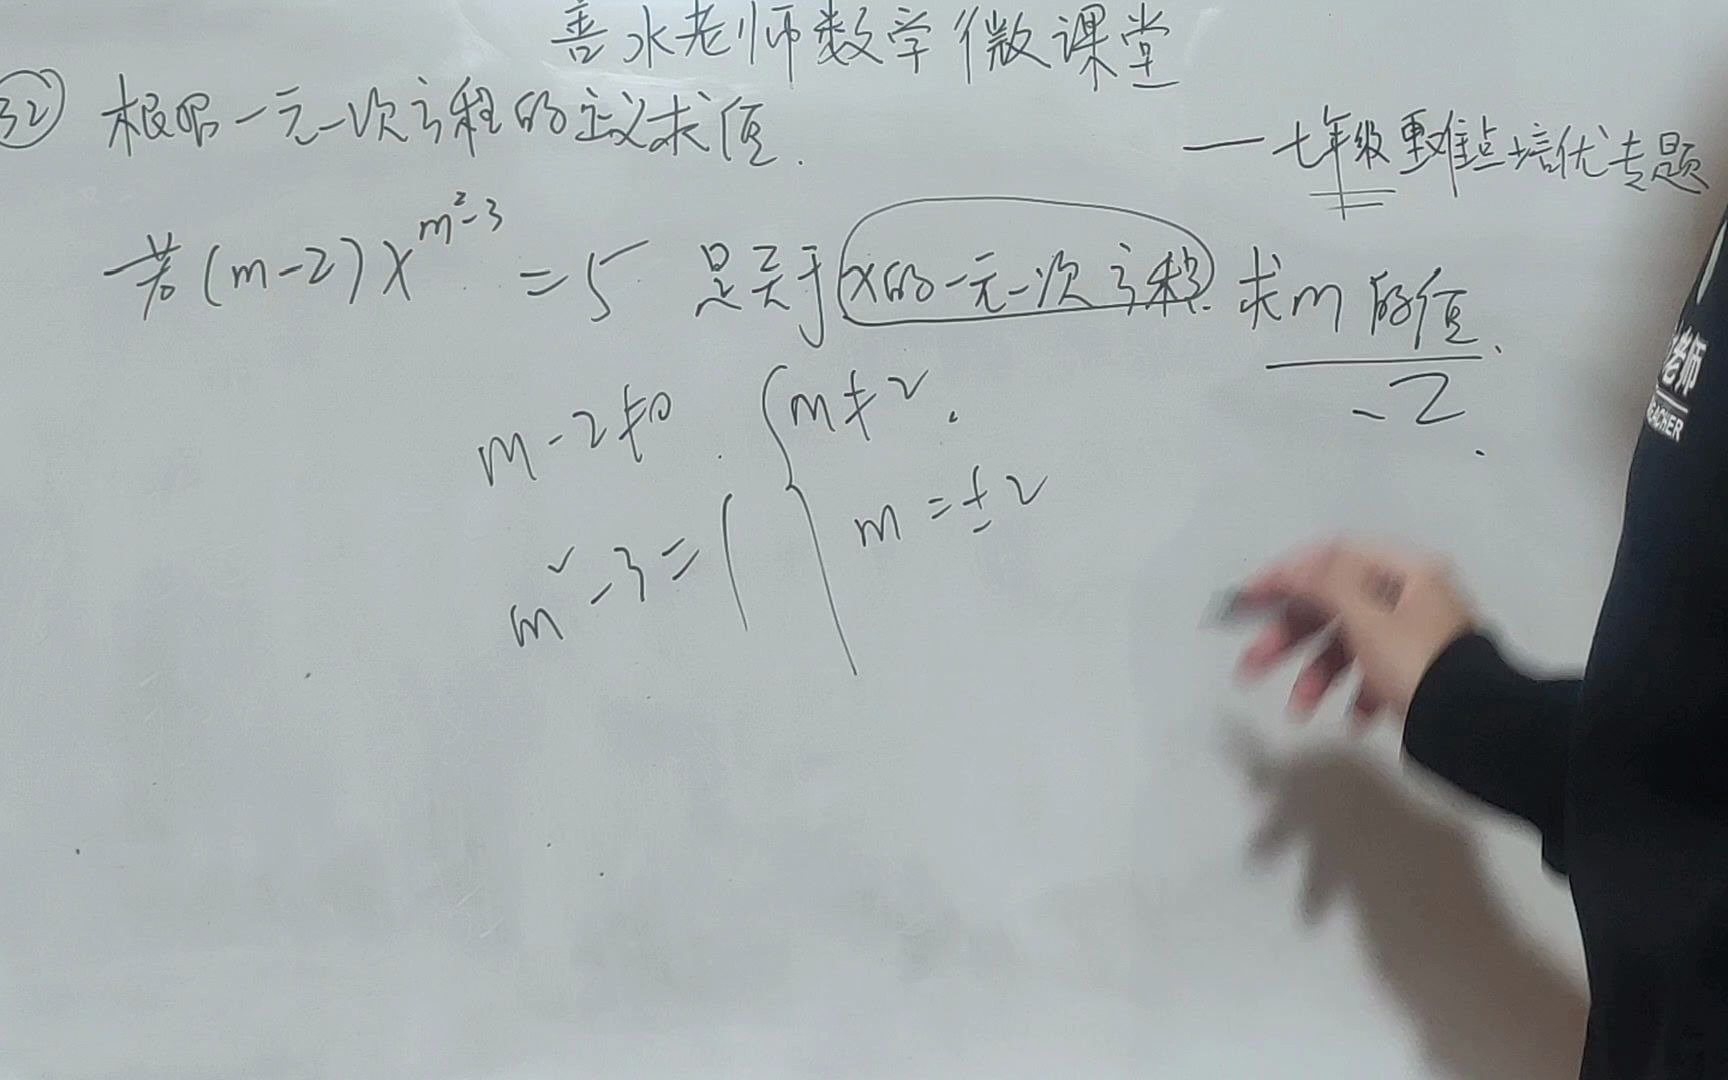 善水老师数学微课堂
32 根据一元一次方程的定义求值.
——七年级重难点培优专题
若(m-2)x^{m²-3}=5 是关于x的一元一次方程.求m的值.
-2.
m-2≠0. m≠2.
m²-3=1 m=±2
老师
TEACHER